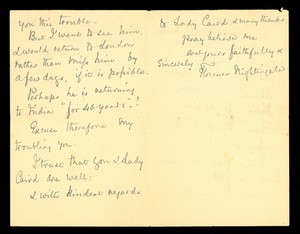 you this trouble.
But I want to see him.
& would return to London
rather than miss him by
a few days, if it is possible.
Perhaps he is returning
to India "for 40 years"!
Excuse therefore my
troubling you.
I trust that you & Lady
Caird are well:
& with kindest regards
to Lady Caird, & many thanks
Pray believe me
ever yours faithfully &
Sincerely
Florence Nightingale